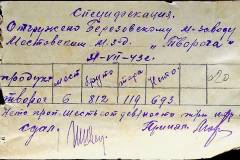 Спецификация.
Отгружено Березовскому м-заводу
Мостовским м.з-д. "Творога"
31-VII-43г.
продукт мест брутто тара нетто
творог 6 812 119 693
Нето прописью: шестьсот девяносто три кгр
сдал: Принял